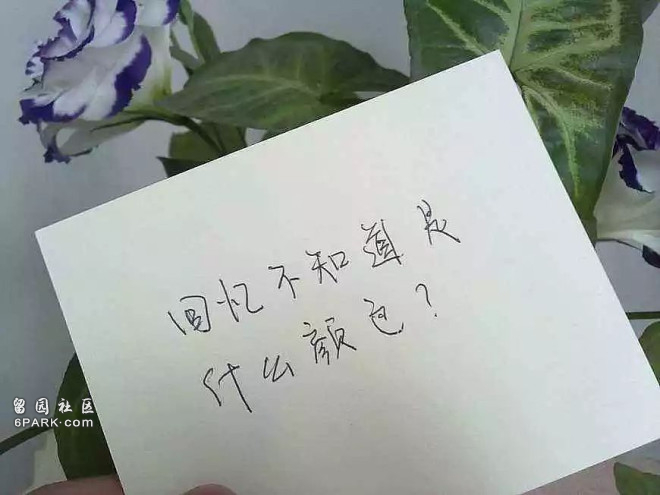 回忆不知道是
什么颜色?
留园社区
6PARK.com